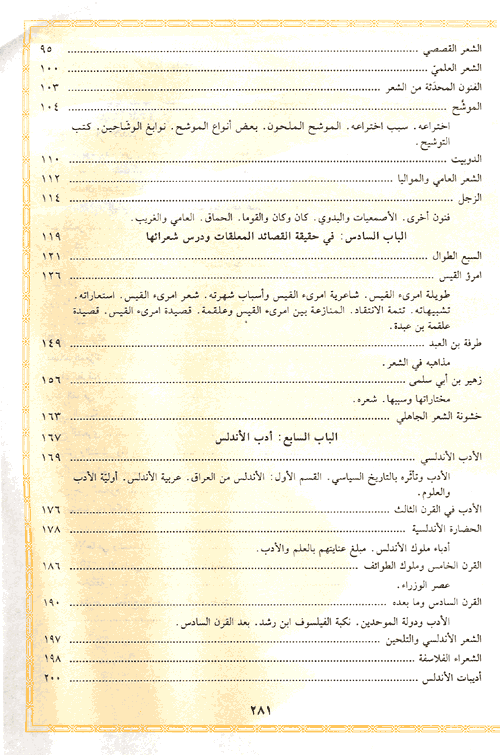 الشعر القصصي ........ ٩٥
الشعر العلميّ ........ ١٠٠
الفنون المحدثة من الشعر ........ ١٠٣
الموشّح ........ ١٠٤
اختراعه. سبب اختراعه. الموشح الملحون. بعض أنواع الموشح. نوابغ الوشاحين. كتب
التوشيح.
الدوبيت ........ ١١٠
الشعر العامي والمواليا ........ ١١٢
الزجل ........ ١١٤
فنون أخرى. الأصمعيات والبدوي. كان وكان والقوما. الحماق. العامي والغريب.
الباب السادس: في حقيقة القصائد المعلقات ودرس شعرائها ١١٩
السبع الطوال ........ ١٢١
امرؤ القيس ........ ١٢٦
طويلة امرىء القيس. شاعرية امرىء القيس وأسباب شهرته. شعر امرىء القيس. استعاراته.
تشبيهاته. تتمة الانتقاد. المنازعة بين امرىء القيس وعلقمة. قصيدة امرىء القيس. قصيدة
علقمة بن عبدة.
طرفة بن العبد ........ ١٤٩
مذاهبه في الشعر.
زهير بن أبي سلمى ........ ١٥٦
مختاراتها وسببها. شعره.
خشونة الشعر الجاهلي ........ ١٦٣
الباب السابع: أدب الأندلس ١٦٧
الأدب الأندلسي ........ ١٦٩
الأدب وتأثّره بالتاريخ السياسي. القسم الأول: الأندلس من العراق. عربية الأندلس. أوليّة الأدب
والعلوم.
الأدب في القرن الثالث ........ ١٧٦
الحضارة الأندلسية ........ ١٧٨
أدباء ملوك الأندلس. مبلغ عنايتهم بالعلم والأدب.
القرن الخامس وملوك الطوائف ........ ١٨٦
عصر الوزراء.
القرن السادس وما بعده ........ ١٩٠
الأدب ودولة الموحدين. نكبة الفيلسوف ابن رشد. بعد القرن السادس.
الشعر الأندلسي والتلحين ........ ١٩٧
الشعراء الفلاسفة ........ ١٩٨
أديبات الأندلس ........ ٢٠٠
٢٨١